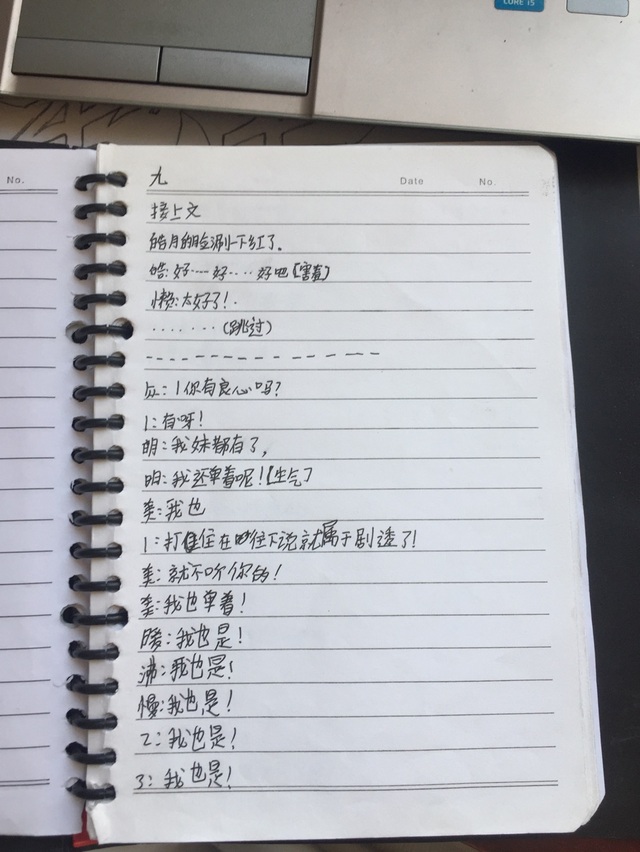 CORE i5
No.
九
Date No.
接上文
皓月的脸涮一下红了。
皓:好……好……好吧【害羞】
懒:太好了!.
.......(跳过)
--------------
丘:1你有良心吗?
1:有呀!
明:我妹都有了,
明:我还单着呢!【生气】
奎:我也
1:打住住在往下说就属于剧透了!
奎:就不听你的!
奎:我也单着!
暖:我也是!
沸:我也是!
慢:我也是!
2:我也是!
3:我也是!